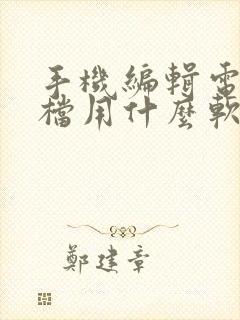 手機編輯電
檔用什麼軟
鄭建章